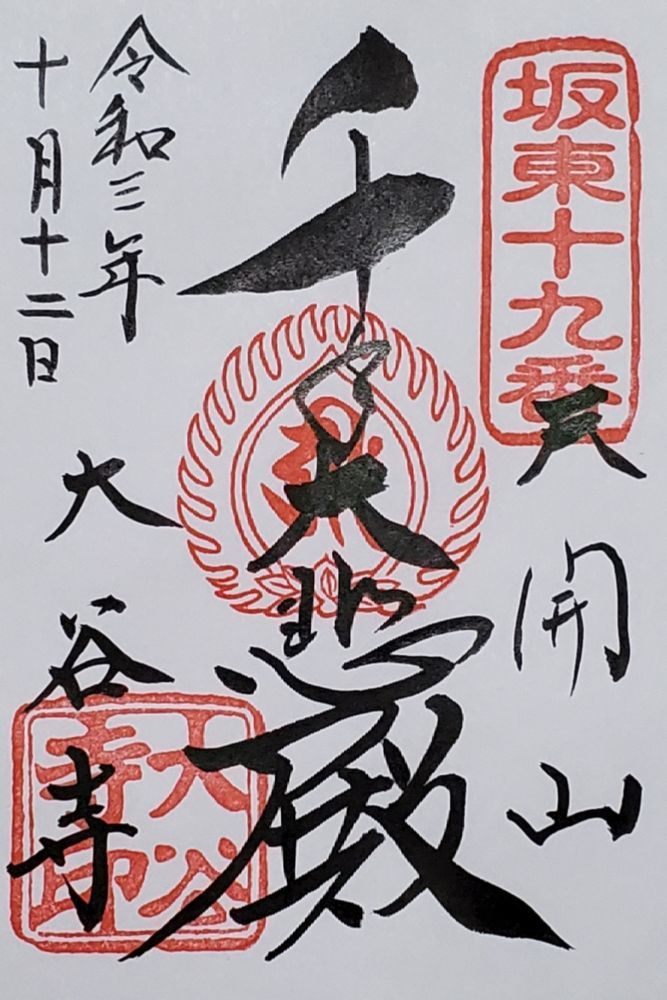 坂東十九番
天開山
千手大悲殿
令和三年
十月十二日
大谷寺
大谷
寺印